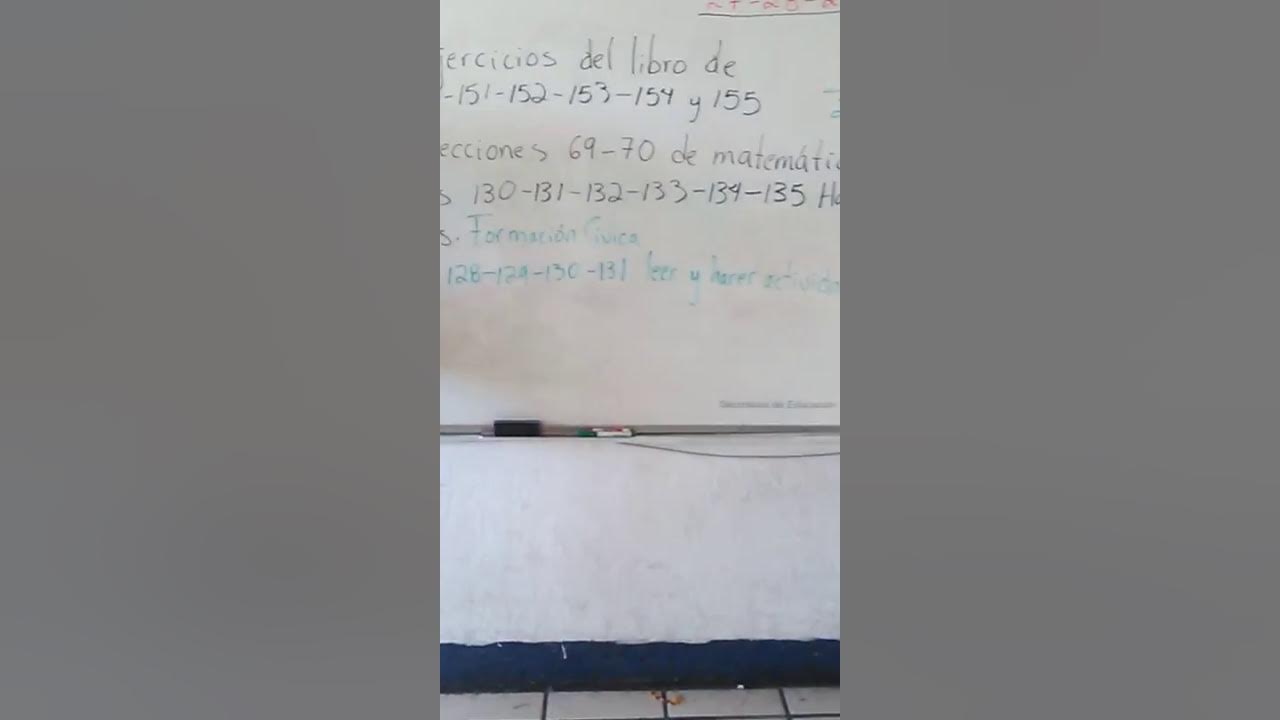 ercicios del libro de
-151-152-153-154 y 155
ecciones 69-70 de matemátic
s 130-131-132-133-134-135 Ha
s. Formación Cívica
128-129-130-131 leer y hacer activida
Secretaría de Educación